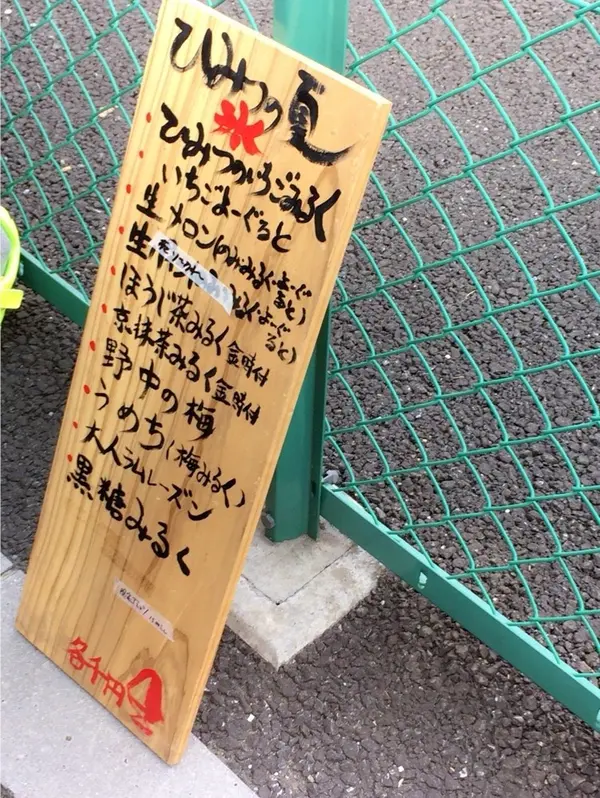 ひみつの夏
氷
ひみつのいちごみるく
いちごよーぐると
生メロン(のみ・みるく・よーぐると)
生 (よーぐると)
ほうじ茶みるく金時付
京抹茶みるく金時付
野中の梅
うめちち(梅みるく)
大人ラムレーズン
黒糖みるく
各千円